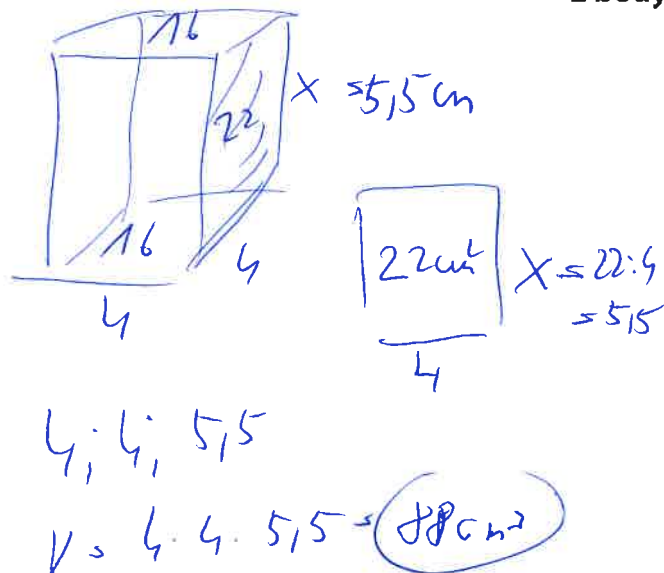 2 body
16
22
x = 5,5 cm
16
4
4
22cm²
x = 22:4
= 5,5
4
4; 4; 5,5
V = 4. 4. 5,5 = 88 cm³